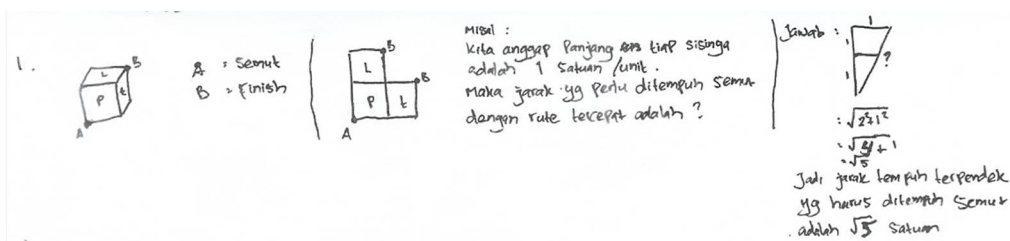 1.
L
P
t
B
A
A = Semut
B = Finish
B
L
B
P
t
A
Misal :
Kita anggap Panjang tiap sisinga
adalah 1 Satuan /unit.
Maka jarak yg perlu ditempuh semut
dengan rute tercepat adalah ?
Jawab :
1
1
1
?
: √2²+1²
: √4+1
= √5
Jadi jarak tempuh terpendek
yg harus ditempuh semut
adalah √5 Satuan